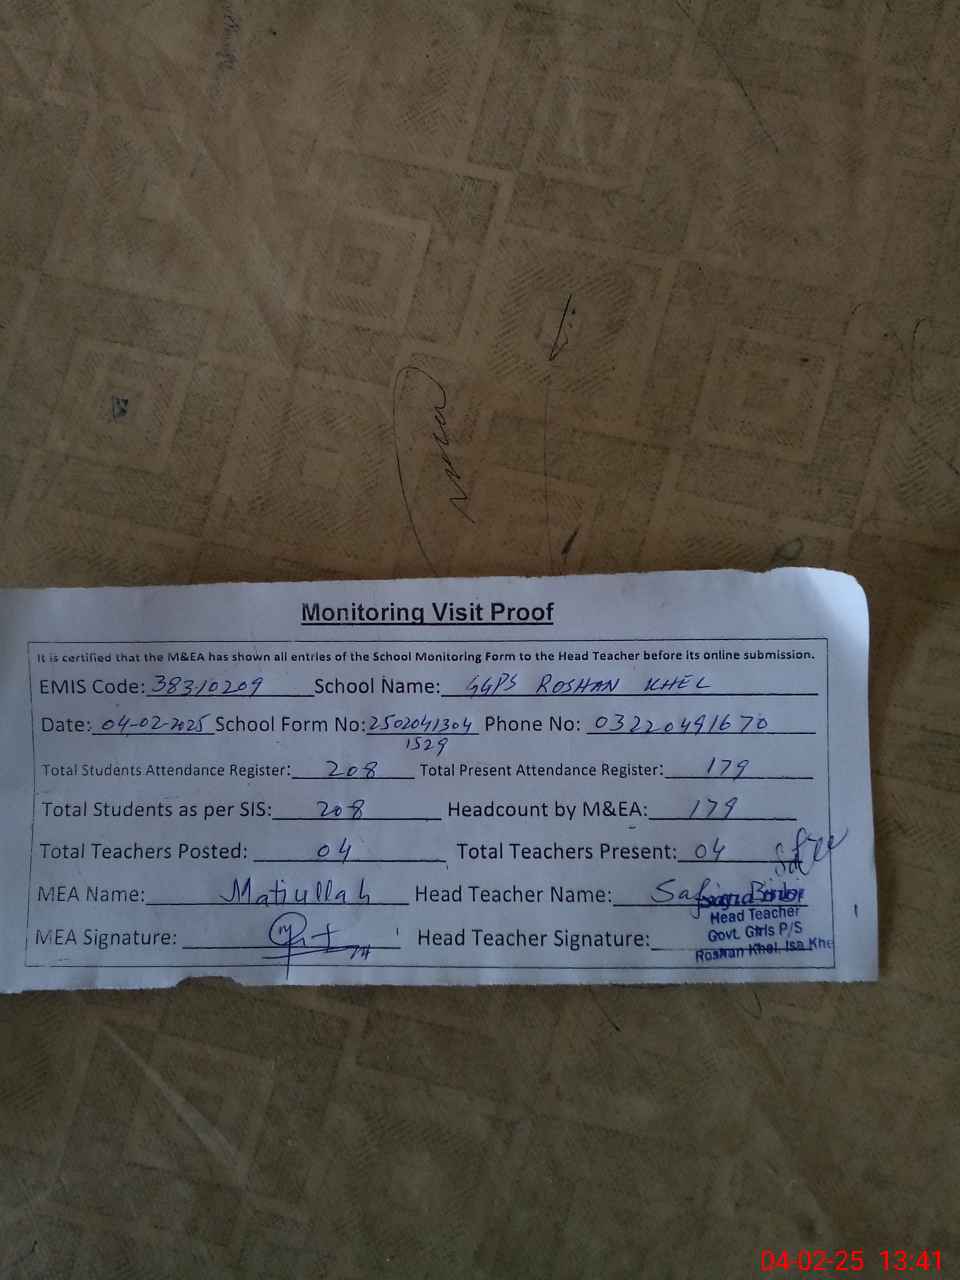 Monitoring Visit Proof
It is certified that the M&EA has shown all entries of the School Monitoring Form to the Head Teacher before its online submission.
EMIS Code: 38310209 School Name: GGPS ROSHAN KHEL
Date: 04-02-2025 School Form No: 2502041304 Phone No: 03220491670
1529
Total Students Attendance Register: 208 Total Present Attendance Register: 179
Total Students as per SIS: 208 Headcount by M&EA: 179
Total Teachers Posted: 04 Total Teachers Present: 04
MEA Name: Matiullah Head Teacher Name: Bibi
MEA Signature: Head Teacher Signature:
Head Teacher
Govt. Girls P/S
Roshan Khel, Isa Khe
04-02-25 13:41